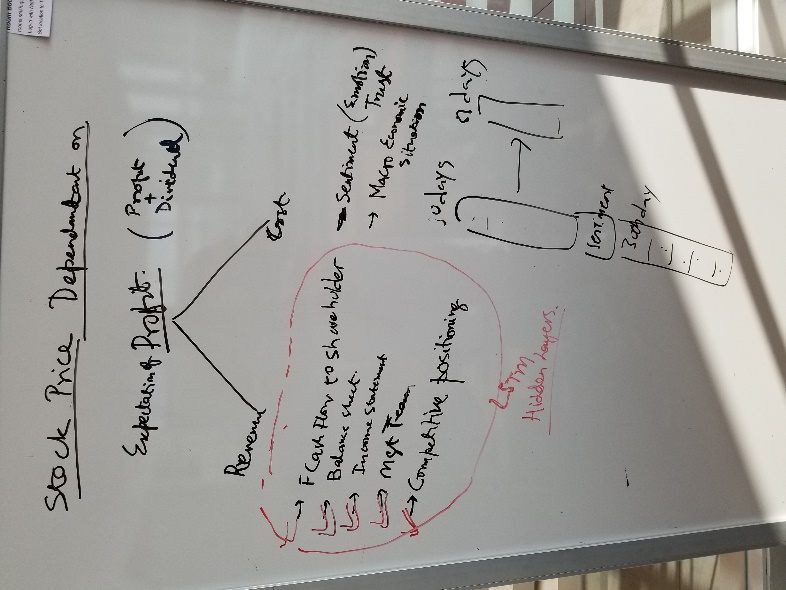 Stock Price Dependent on
Expectation of Profit. (Profit + Dividend)
Revenue
Cost
→ F Cash Flow to shareholder
→ Balance sheet.
→ Income statement
→ Mgt Team
→ Competitive positioning
→ Sentiment (Emotion)
Trust
→ Macro Economic
situation
LSTM
Hidden Layers.
days
→
days
day